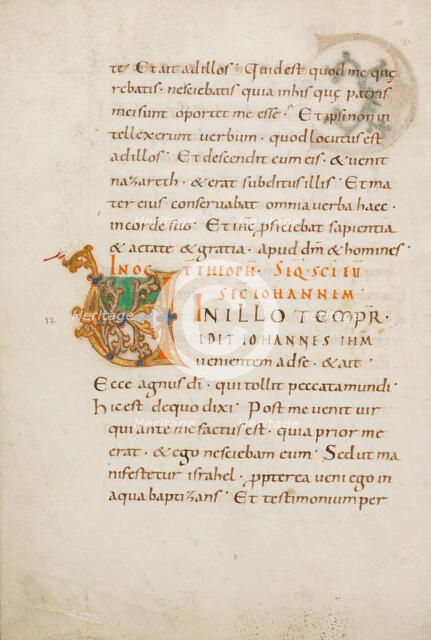 te · Et ait ad illos · Quid est quod me quę
rebatis · nesciebatis quia in his quę patris
mei sunt oportet me esse · Et ipsi non in
tellexerunt verbum · quod locutus est
ad illos · Et descendit cum eis · & venit
nazareth · & erat subditus illis · Et ma
ter eius conservabat omnia verba haec ·
in corde suo · Et ihc pficiebat sapientia
& aetate & gratia · apud dm & homines ·
IN OCT THEOPH · SEQ · SCI EU
SEC IOHANNEM
IN ILLO TEMPR ·
IDIT IOHANNES IHM
venientem ad se · & ait ·
Ecce agnus di · qui tollit peccata mundi ·
hic est de quo dixi · Post me venit vir
qui ante me factus est · quia prior me
erat · & ego nesciebam eum · Sed ut ma
nifestetur israhel · ppterea veni ego in
aqua baptizans · Et testimonium per
12
Heritage
Heritage
Heritage
Heritage
Heritage
Heritage